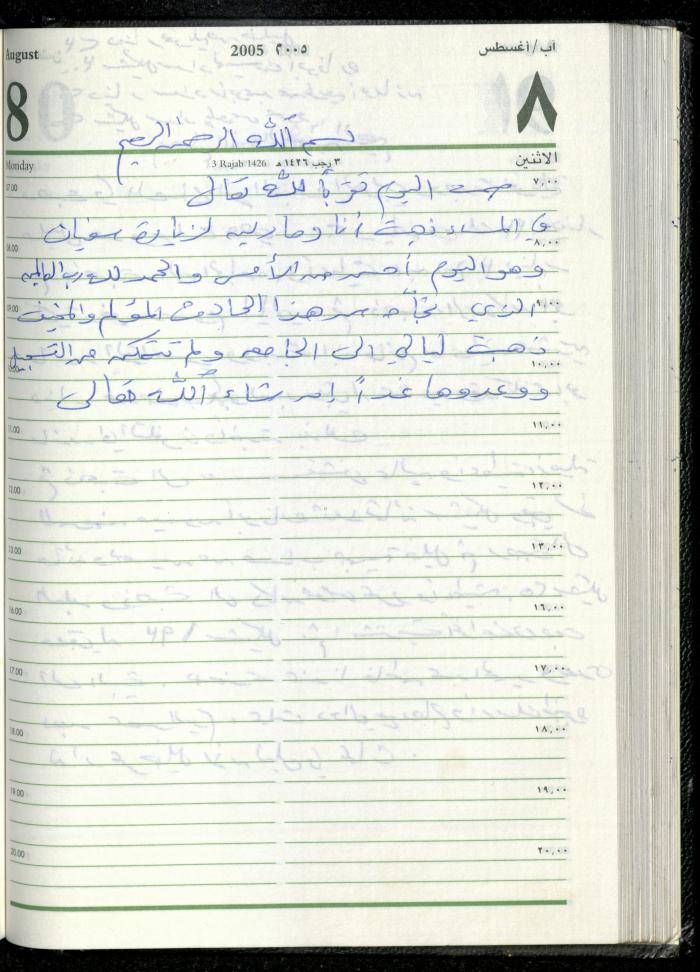 August 2005 ٢٠٠٥ آب/أغسطس
8 ٨
بسم الله الرحمن الرحيم
Monday 3 Rajab 1426 ٣ رجب ١٤٢٦ هـ الاثنين
07.00 صمت اليوم تقرباً لله تعالى ٧,٠٠
في المساء ذهبت أنا وماريه لزيارة سفيان
08.00 ٨,٠٠
وهو اليوم أحسن من الأمس والحمد لله رب العالمين
09.00 الذي نجّاه من هذا الحادث المؤلم والمخيف ٩,٠٠
ذهبت ليالي الى الجامعه ولم تتمكن من التسجيل
10.00 ١٠,٠٠
ووعدوها غداً إن شاء الله تعالى
11.00 ١١,٠٠
12.00 ١٢,٠٠
13.00 ١٣,٠٠
16.00 ١٦,٠٠
17.00 ١٧,٠٠
18.00 ١٨,٠٠
19.00 ١٩,٠٠
20.00 ٢٠,٠٠